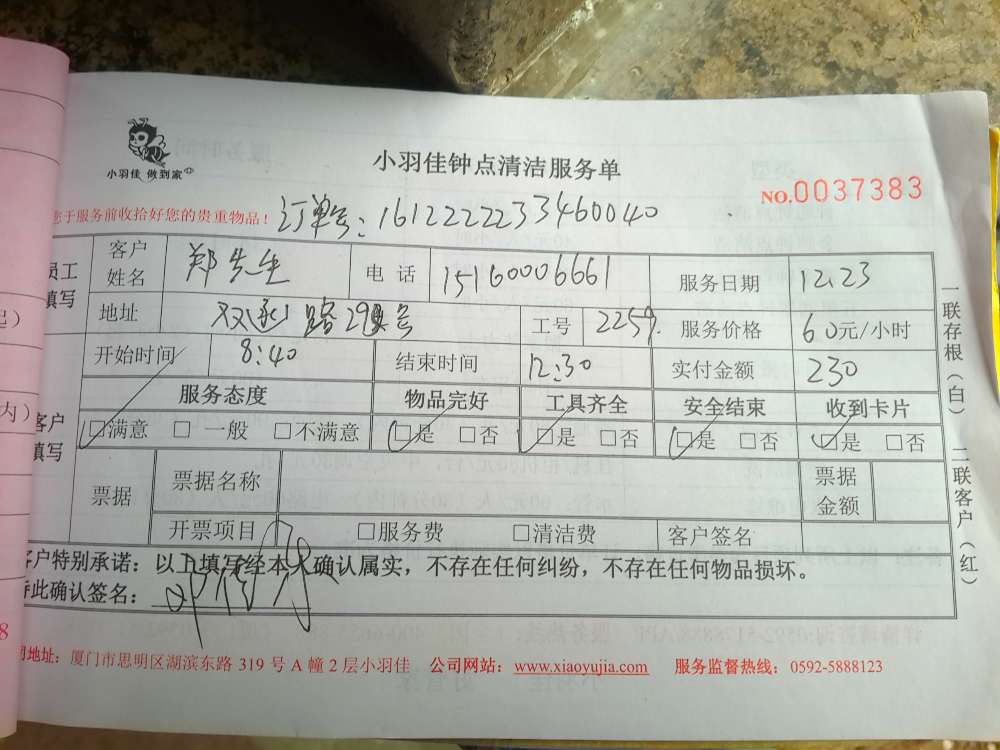 小羽佳 做到家
小羽佳钟点清洁服务单
NO.0037383
您于服务前收拾好您的贵重物品！ 订单号：1612222233460040
员工填写 客户姓名 郑先生 电话 15160006661 服务日期 12.23
地址 路29 号 工号 2259. 服务价格 60元/小时
开始时间 8:40 结束时间 12:30 实付金额 230
客户填写 服务态度 物品完好 工具齐全 安全结束 收到卡片
☑满意 □一般 □不满意 ☑是 □否 ☑是 □否 ☑是 □否 ☑是 □否
票据 票据名称 票据金额
开票项目 □服务费 □清洁费 客户签名
客户特别承诺：以上填写经本人确认属实，不存在任何纠纷，不存在任何物品损坏。
此确认签名：
地址：厦门市思明区湖滨东路 319 号 A 幢 2 层小羽佳 公司网站：www.xiaoyujia.com 服务监督热线：0592-5888123
一联存根（白）
二联客户（红）
起）
内）
8